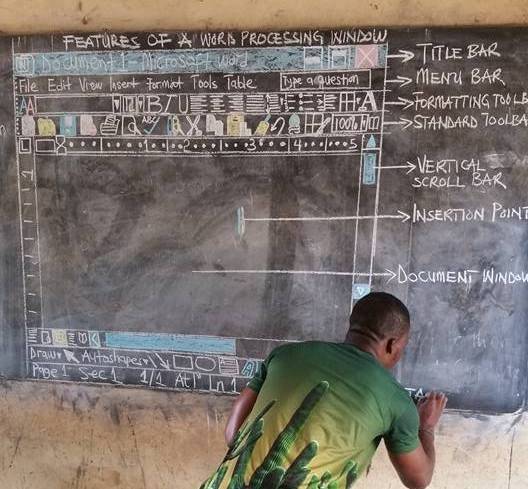 FEATURES OF A WORD PROCESSING WINDOW
Document 1 - Microsoft word
TITLE BAR
File Edit View Insert format Tools Table
Type a question
MENU BAR
AA
B I U
A
FORMATTING TOOLB
ABC
100%
STANDARD TOOLBA
1 2 3 4 5
VERTICAL
SCROLL BAR
1
INSERTION POINT
DOCUMENT WINDOW
Draw Autoshapes
Page 1 Sec 1 1/1 At 1" Ln 1
STA